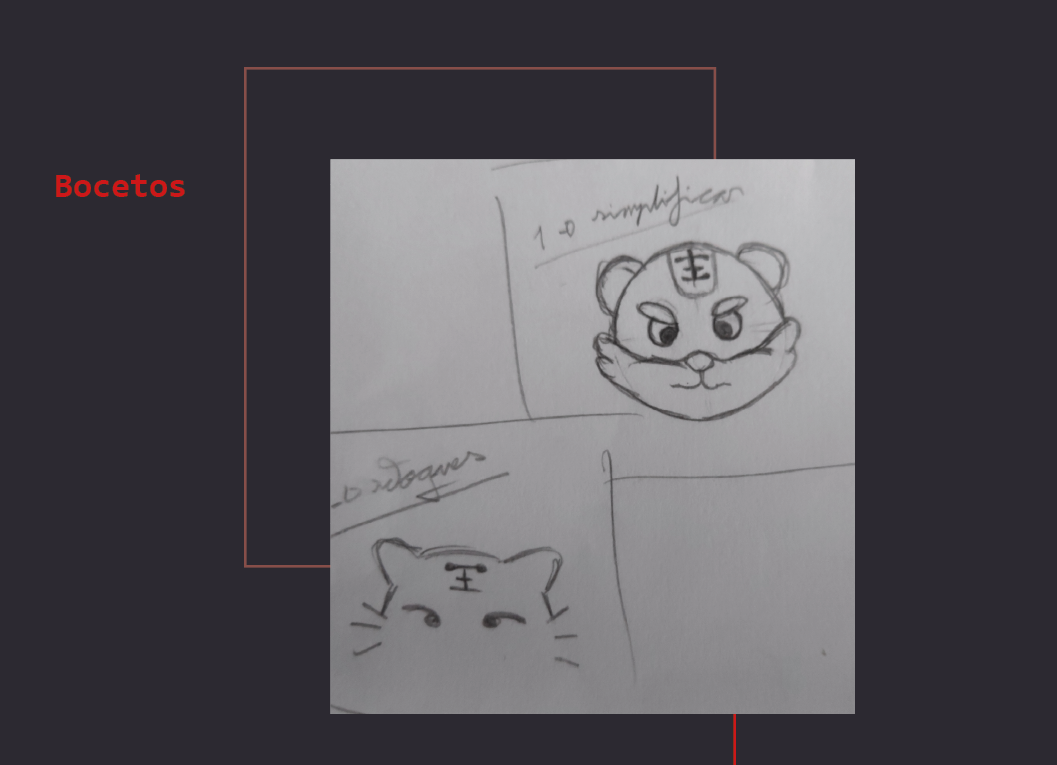 Bocetos
1 → simplificar
王
→ retoques
王